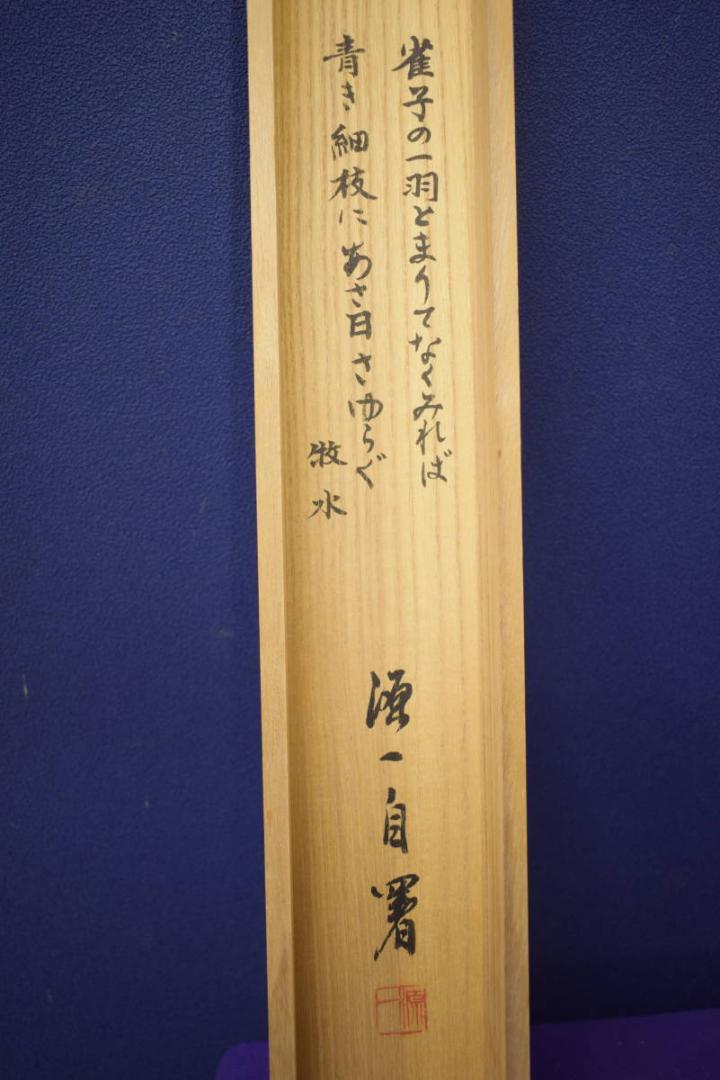 雀子の一羽とまりてなくみれば
青き細枝にあさ日さゆらぐ
牧水
源一自署
源一